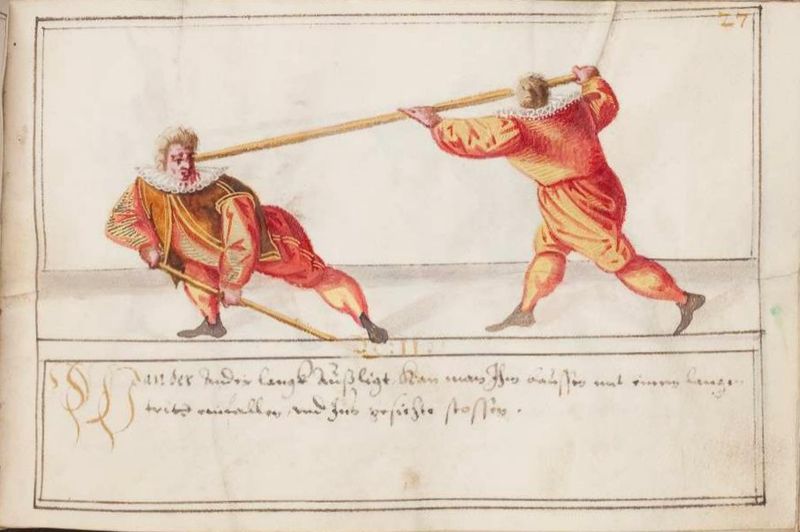 27
Wan der Ander langk Außligt, Kan man Ihm daussen mit einem langen
tritt einfallen, und Ins gesichte stossen.